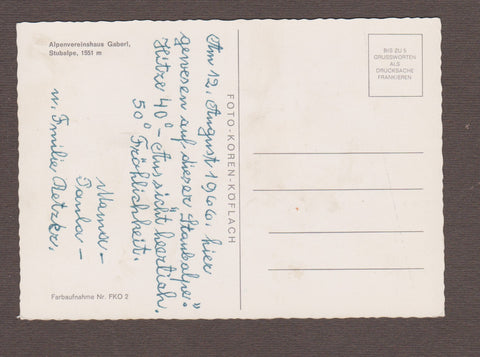 Alpenvereinshaus Gaberl,
Stubalpe, 1551 m
Am 12. August 1966. hier
gewesen auf dieser „Staubalpe“
Hitze 40° – Aussicht heerlich.
50° Fröhlichkeit.
Mama –
–
u. Familie
Farbaufnahme Nr. FKO 2
FOTO-KOREN-KÖFLACH
BIS ZU 5
GRUSSWORTEN
ALS
DRUCKSACHE
FRANKIEREN